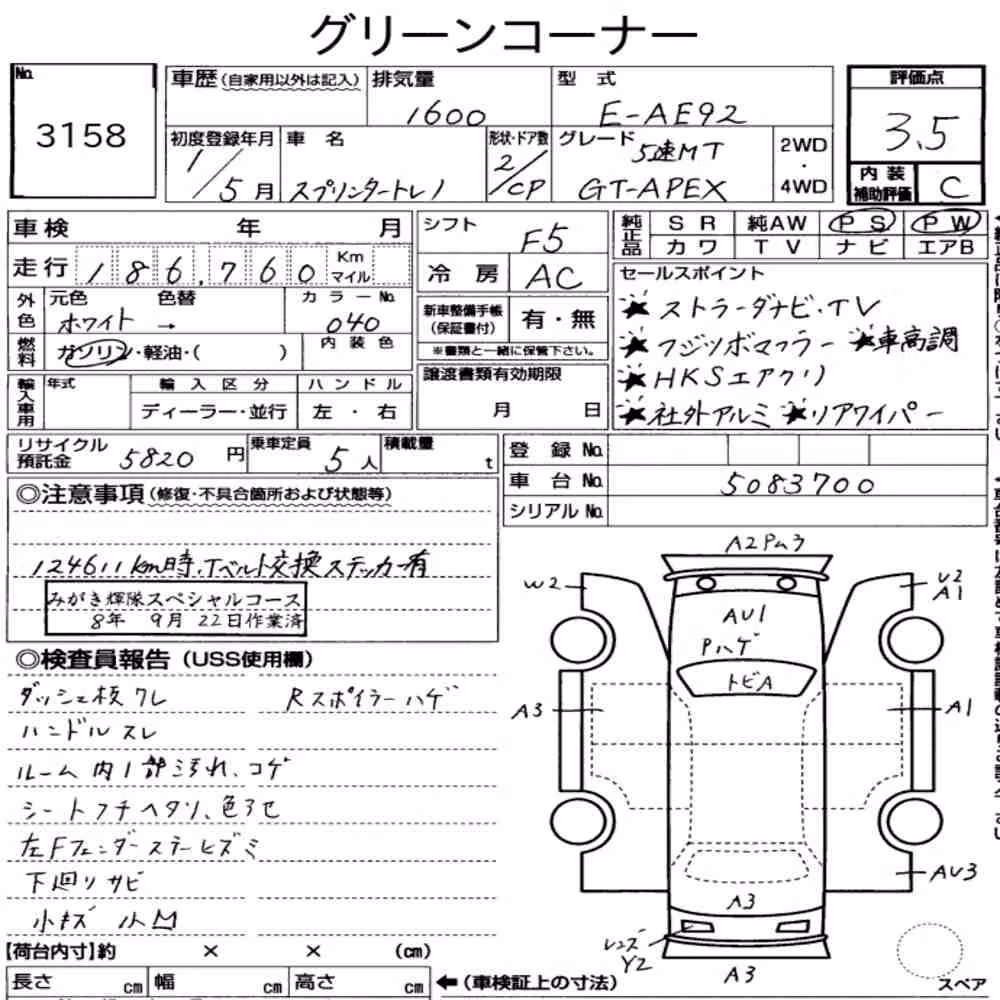 グリーンコーナー
No. 3158
車歴(自家用以外は記入) 排気量 1600 型式 E-AE92
評価点 3.5
初度登録年月 1/5月 車名 スプリンタートレノ 形状・ドア数 2/CP グレード 5速MT GT-APEX 2WD・4WD
内装補助評価 C
車検 年 月 シフト F5
純正品 SR 純AW PS PW
カワ TV ナビ エアB
走行 186,760 Km マイル 冷房 AC
セールスポイント
★ストラーダナビ・TV
★フジツボマフラー ★車高調
★HKSエアクリ
★社外アルミ ★リアワイパー
外色 元色 ホワイト → 色替 カラーNo. 040
新車整備手帳(保証書付) 有・無
※書類と一緒に保管下さい。
燃料 ガソリン・軽油・( ) 内装色
譲渡書類有効期限 月 日
輸入車用 年式 輸入区分 ハンドル
ディーラー・並行 左・右
リサイクル預託金 5820円 乗車定員 5人 積載量 t
登録No.
車台No. 5083700
シリアルNo.
◎注意事項(修復・不具合箇所および状態等)
124611km時、Tベルト交換ステッカー有
みがき輝隊スペシャルコース
8年 9月 22日作業済
◎検査員報告(USS使用欄)
ダッシュ板ワレ Rスポイラーハゲ
ハンドルスレ
ルーム内1部汚れ、コゲ
シートフチヘタリ、色アセ
左Fフェンダーステーヒズミ
下廻りサビ
小キズ 小凹
【荷台内寸】約 × × (cm)
長さ cm 幅 cm 高さ cm ←(車検証上の寸法)
A2Pムラ
W2
U2
A1
AU1
Pハゲ
トビA
A3
A1
AU3
A3
レンズ
Y2
A3
スペア